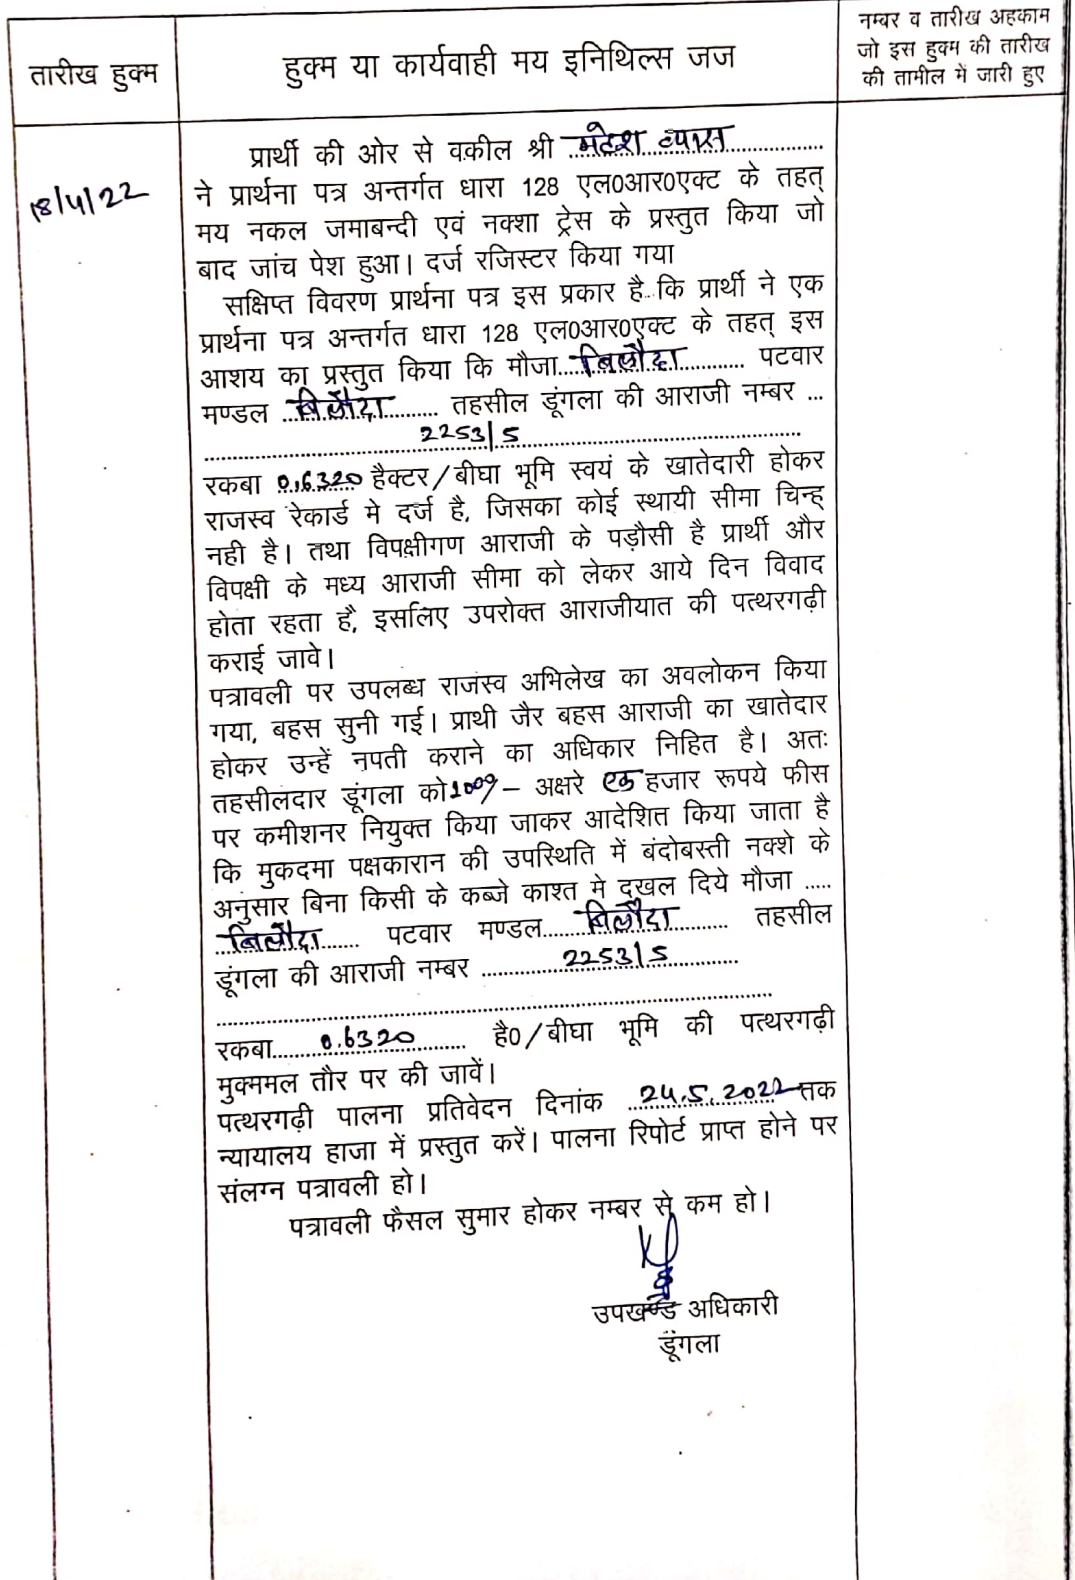 तारीख हुक्म
हुक्म या कार्यवाही मय इनिथिल्स जज
नम्बर व तारीख अहकाम
जो इस हुक्म की तारीख
की तामील में जारी हुए
18/4/22
प्रार्थी की ओर से वकील श्री ............ व्यास ............
ने प्रार्थना पत्र अन्तर्गत धारा 128 एल0आर0एक्ट के तहत्
मय नकल जमाबन्दी एवं नक्शा ट्रेस के प्रस्तुत किया जो
बाद जांच पेश हुआ। दर्ज रजिस्टर किया गया
सक्षिप्त विवरण प्रार्थना पत्र इस प्रकार है कि प्रार्थी ने एक
प्रार्थना पत्र अन्तर्गत धारा 128 एल0आर0एक्ट के तहत् इस
आशय का प्रस्तुत किया कि मौजा....बिलौदा............ पटवार
मण्डल ..बिलौदा........ तहसील डूंगला की आराजी नम्बर ...
................................2253/5................................
रकबा 0.6320 हैक्टर/बीघा भूमि स्वयं के खातेदारी होकर
राजस्व रेकार्ड मे दर्ज है, जिसका कोई स्थायी सीमा चिन्ह्
नही है। तथा विपक्षीगण आराजी के पड़ौसी है प्रार्थी और
विपक्षी के मध्य आराजी सीमा को लेकर आये दिन विवाद
होता रहता है, इसलिए उपरोक्त आराजीयात की पत्थरगढ़ी
कराई जावे।
पत्रावली पर उपलब्ध राजस्व अभिलेख का अवलोकन किया
गया, बहस सुनी गई। प्राथी जैर बहस आराजी का खातेदार
होकर उन्हें नपती कराने का अधिकार निहित है। अतः
तहसीलदार डूंगला को 1000/- अक्षरे एक हजार रूपये फीस
पर कमीशनर नियुक्त किया जाकर आदेशित किया जाता है
कि मुकदमा पक्षकारान की उपस्थिति में बंदोबस्ती नक्शे के
अनुसार बिना किसी के कब्जे काश्त मे दखल दिये मौजा .....
..बिलौदा...... पटवार मण्डल......बिलौदा......... तहसील
डूंगला की आराजी नम्बर ............2253/5............
................................................................
रकबा.......0.6320........ है0/बीघा भूमि की पत्थरगढ़ी
मुक्ममल तौर पर की जावें।
पत्थरगढ़ी पालना प्रतिवेदन दिनांक ..24.5.2022 तक
न्यायालय हाजा में प्रस्तुत करें। पालना रिपोर्ट प्राप्त होने पर
संलग्न पत्रावली हो।
पत्रावली फैसल सुमार होकर नम्बर से कम हो।
उपखण्ड अधिकारी
डूंगला